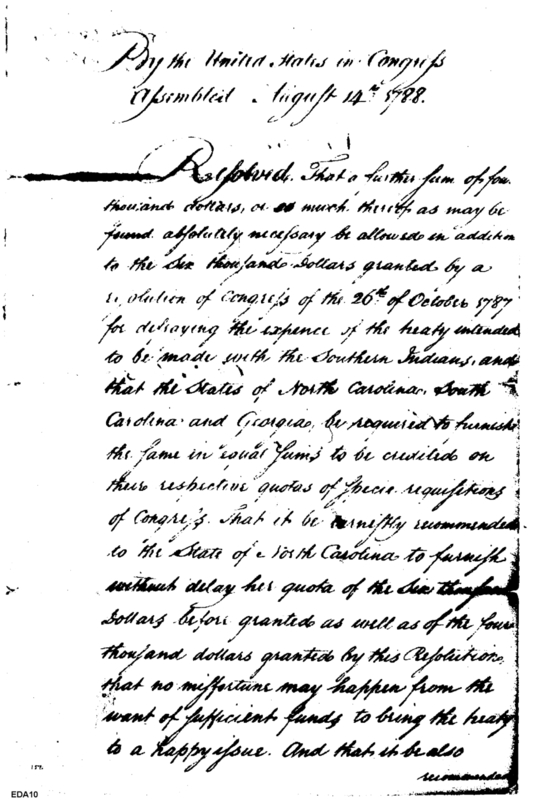 By the United States in Congress
Assembled August 14th 1788.
Resolved. That a further sum of four
thousand dollars, or so much thereof as may be
found absolutely necessary be allowed in addition
to the Six thousand Dollars granted by a
resolution of Congress of the 26th of October 1787
for defraying the expence of the treaty intended
to be made with the Southern Indians, and
that the States of North Carolina, South
Carolina and Georgia, be required to furnish
the same in equal sums to be credited on
their respective quotas of specie requisitions
of Congress. That it be earnestly recommended
to the State of North Carolina to furnish
without delay her quota of the Six thousand
Dollars before granted as well as of the four
thousand dollars granted by this Resolution,
that no misfortune may happen from the
want of sufficient funds to bring the treaty
to a happy issue. And that it be also
recommended
EDA10